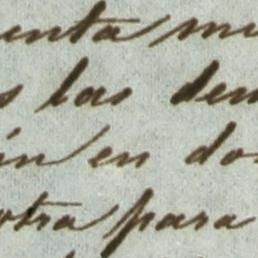 enta mi
s las dem
in en dos
otra para